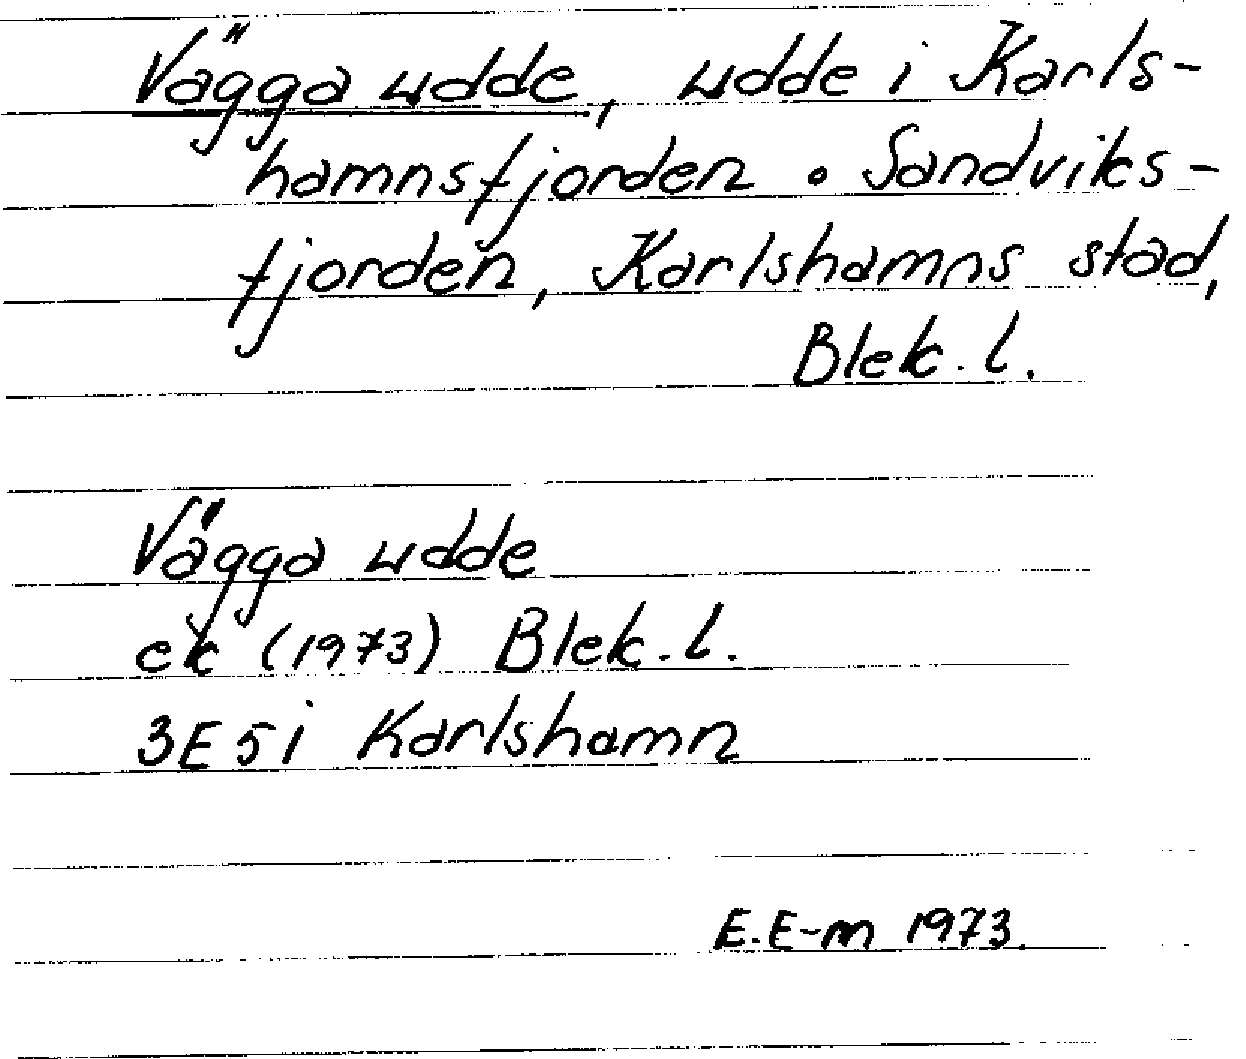 Vägga udde, udde i Karls-
hamnsfjorden o. Sandviks-
fjorden, Karlshamns stad,
Blek. l.
Vägga udde
ek (1973) Blek. l.
3E5i Karlshamn
E. E-m 1973.